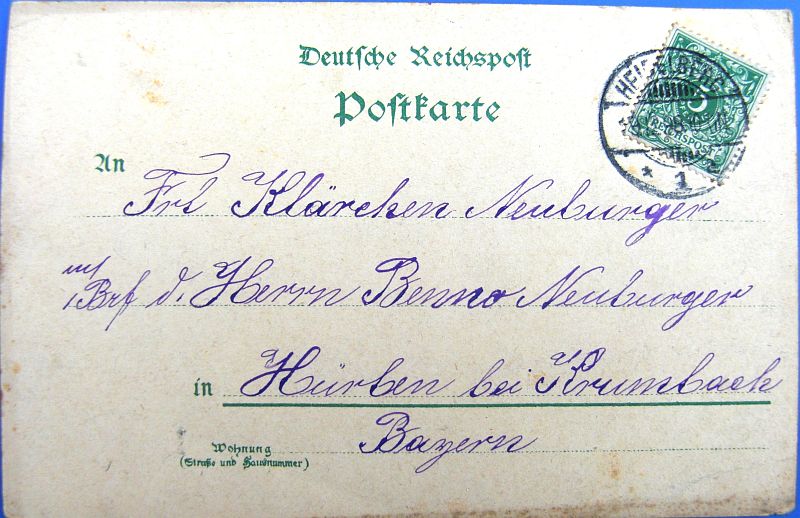 Deutsche Reichspost
Postkarte
HEIDELBERG
REICHSPOST
5
* 1
An
Frl Klärchen Neuburger
Brf d. Herrn Benno Neuburger
in Hürben bei Krumbach
Bayern
Wohnung
(Straße und Hausnummer)